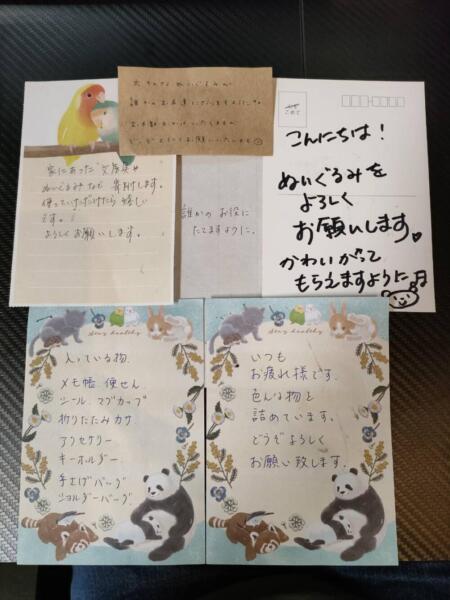 大切なぬいぐるみが
誰かのお友達に
お手数をおかけいたしますが
どうぞよろしくお願いいたします
家にあった文房具や
ぬいぐるみなど 寄付します。
使っていただけたら嬉しい
です。
よろしくお願いします。
誰かのお役に
たてますように。
こんにちは!
ぬいぐるみを
よろしく
お願いします。
かわいがって
もらえますように
Stay healthy
入っている物
メモ帳 便せん
シール マグカップ
折りたたみカサ
アクセサリー
キーホルダー
手さげバッグ
ショルダーバッグ
Stay healthy
いつも
お疲れ様です。
色んな物を
詰めています。
どうぞよろしく
お願い致します。